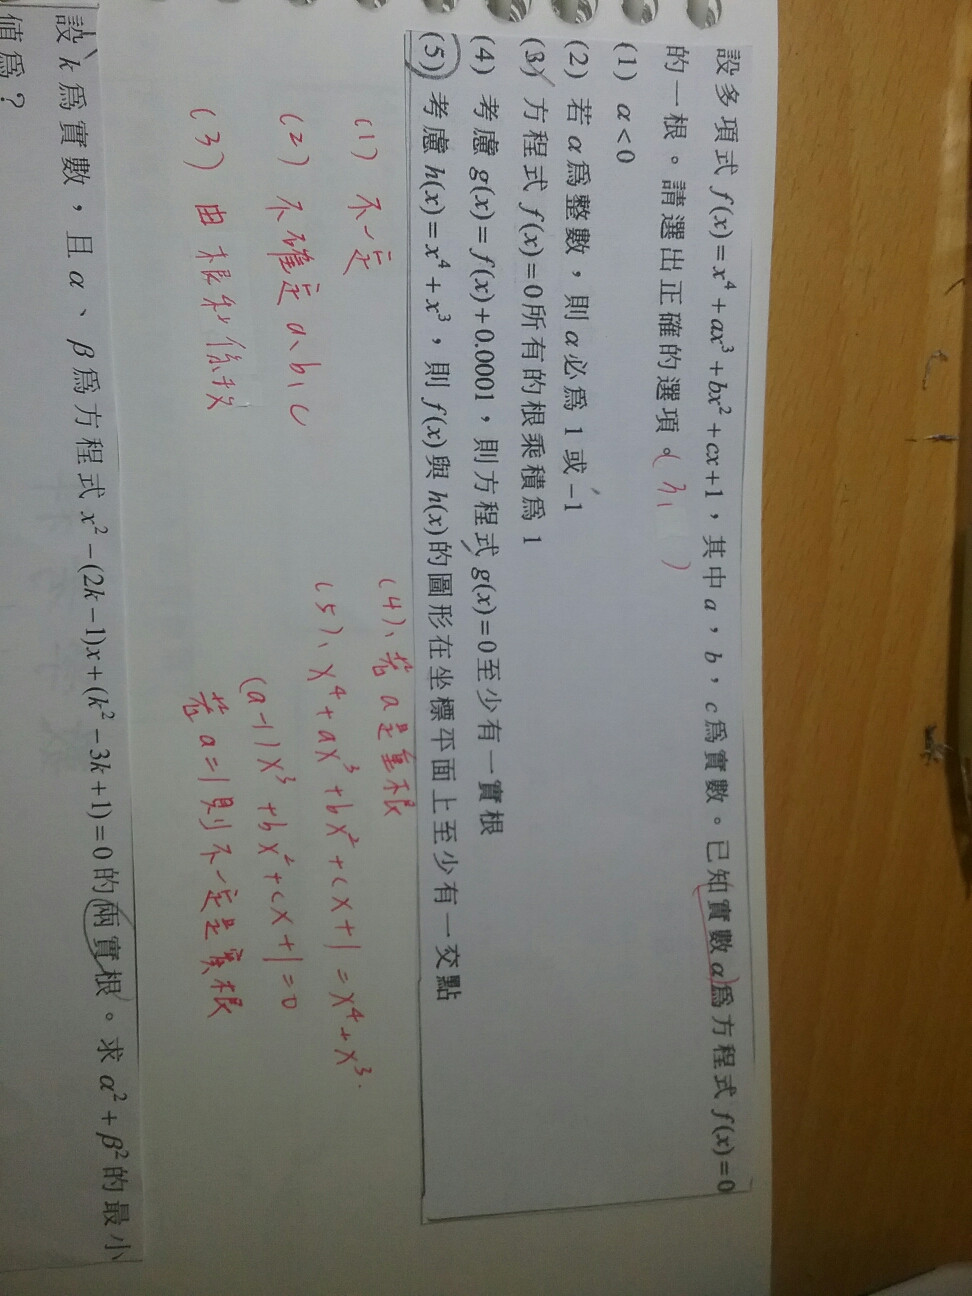 設多項式 f(x)=x⁴+ax³+bx²+cx+1，其中 a，b，c 爲實數。已知實數 α 爲方程式 f(x)=0
的一根。請選出正確的選項。(3, )
(1) α<0
(2) 若 α 爲整數，則 α 必爲 1 或 -1
(3) 方程式 f(x)=0 所有的根乘積爲 1
(4) 考慮 g(x)=f(x)+0.0001，則方程式 g(x)=0 至少有一實根
(5) 考慮 h(x)=x⁴+x³，則 f(x) 與 h(x) 的圖形在坐標平面上至少有一交點
(1) 不一定
(2) 不確定 a、b、c
(3) 由根和係數
(4)、若 a 是重根
(5)、x⁴+ax³+bx²+cx+1=x⁴+x³.
(a-1)x³+bx²+cx+1=0
若 a=1 則不一定是實根
設 k 爲實數，且 α、β 爲方程式 x²-(2k-1)x+(k²-3k+1)=0 的兩實根。求 α²+β² 的最小
值爲？